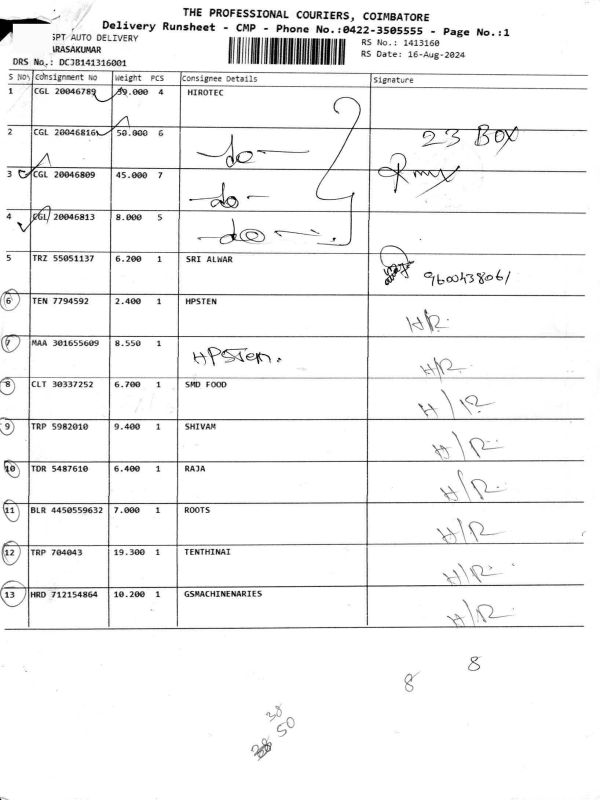 THE PROFESSIONAL COURIERS, COIMBATORE
Delivery Runsheet - CMP - Phone No.:0422-3505555 - Page No.:1
SPT AUTO DELIVERY
ARASAKUMAR
RS No.: 1413160
RS Date: 16-Aug-2024
DRS No.: DCJB141316001
S No Consignment No Weight PCS Consignee Details Signature
1 CGL 20046789 39.000 4 HIROTEC
2 CGL 20046816 50.000 6 -do- 23 BOX
3 CGL 20046809 45.000 7 -do-
4 CGL 20046813 8.000 5 -do-
5 TRZ 55051137 6.200 1 SRI ALWAR 9600438061
6 TEN 7794592 2.400 1 HPSTEN H/R.
7 MAA 301655609 8.550 1 HPSTen. H/R.
8 CLT 30337252 6.700 1 SMD FOOD H/R.
9 TRP 5982010 9.400 1 SHIVAM H/R.
10 TDR 5487610 6.400 1 RAJA H/R.
11 BLR 4450559632 7.000 1 ROOTS H/R.
12 TRP 704043 19.300 1 TENTHINAI H/R.
13 HRD 712154864 10.200 1 GSMACHINENARIES H/R.
8 8
38
50